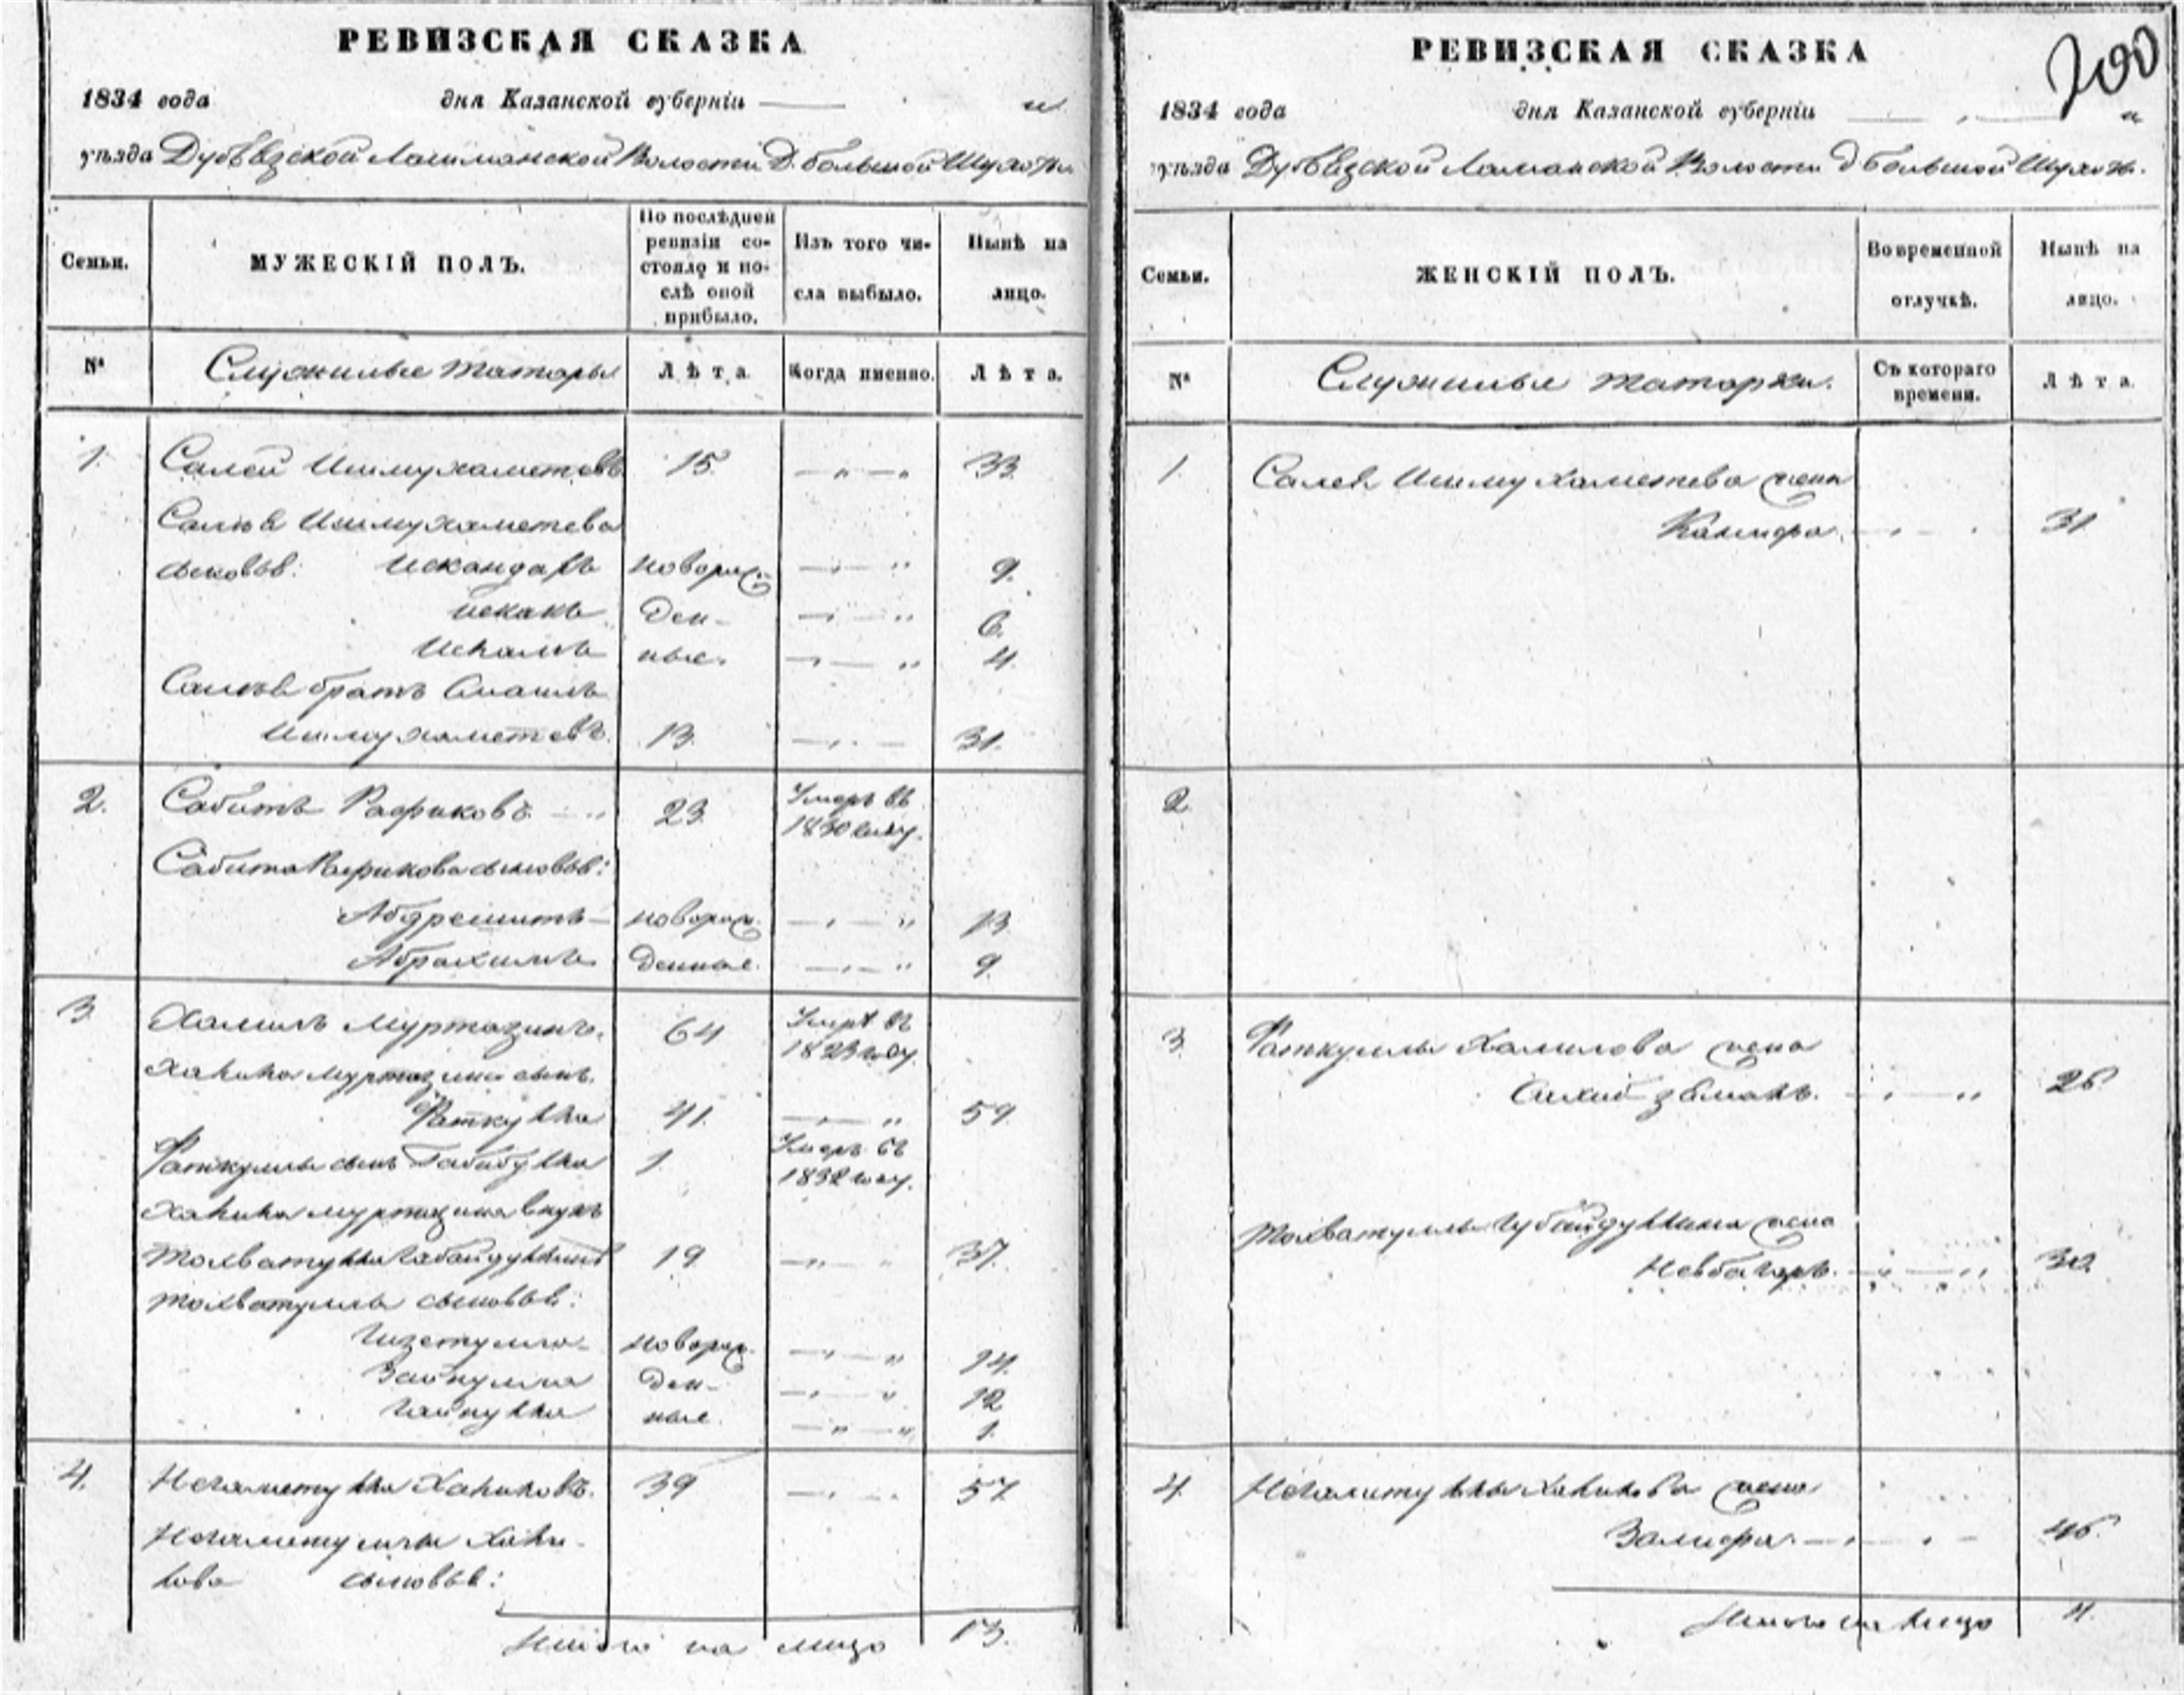 РЕВИЗСКАЯ СКАЗКА
1834 года дня Казанской губерніи
уѣзда Лашманской Волости Д. большой
Семьи.
МУЖЕСКІЙ ПОЛЪ.
По послѣдней ревизіи состояло и послѣ оной прибыло.
Изъ того числа выбыло.
Нынѣ на лицо.
№
Служилые татары
Лѣта
Когда именно.
Лѣта.
1. Салей Ишмухаметевъ 15. 33.
Салея Ишмухаметева
сыновья: Искандаръ новорож- 9.
Исхакъ ден- 6.
ные. 4.
Салея братъ Смаилъ
Ишмухаметевъ. 13. 31.
2. Сабитъ Рафиковъ 23. Умеръ въ 1830 году.
Сабита Рафикова сыновья:
Абдрешитъ новорож- 13
Абрахимъ денные. 9.
3 Халилъ Муртазинъ. 64 Умеръ въ 1823 году.
Халила Муртазина сынъ.
Фаткулла 41. 59.
Фаткуллы сынъ Габибулла 1. Умеръ въ 1832 году.
Халила Муртазина внукъ
19 37.
сыновья:
новорож- 14.
Зайнулла ден- 12
ные. 1.
4. Негаметулла Халиловъ. 39 57.
Негаметуллы Хали-
лова сыновья:
Итого на лицо 13.
РЕВИЗСКАЯ СКАЗКА
200
1834 года дня Казанской губерніи
уѣзда Лашманской Волости д большой
Семьи.
ЖЕНСКІЙ ПОЛЪ.
Во временной отлучкѣ.
Нынѣ на лицо.
№
Служилыя татарки.
Съ котораго времени.
Лѣта.
1. Салея Ишмухаметева жена
31
2
3. Фаткуллы Халилова жена
жена
30.
4. Негаметуллы Халилова жена
Залифа
Итого на лицо 4.